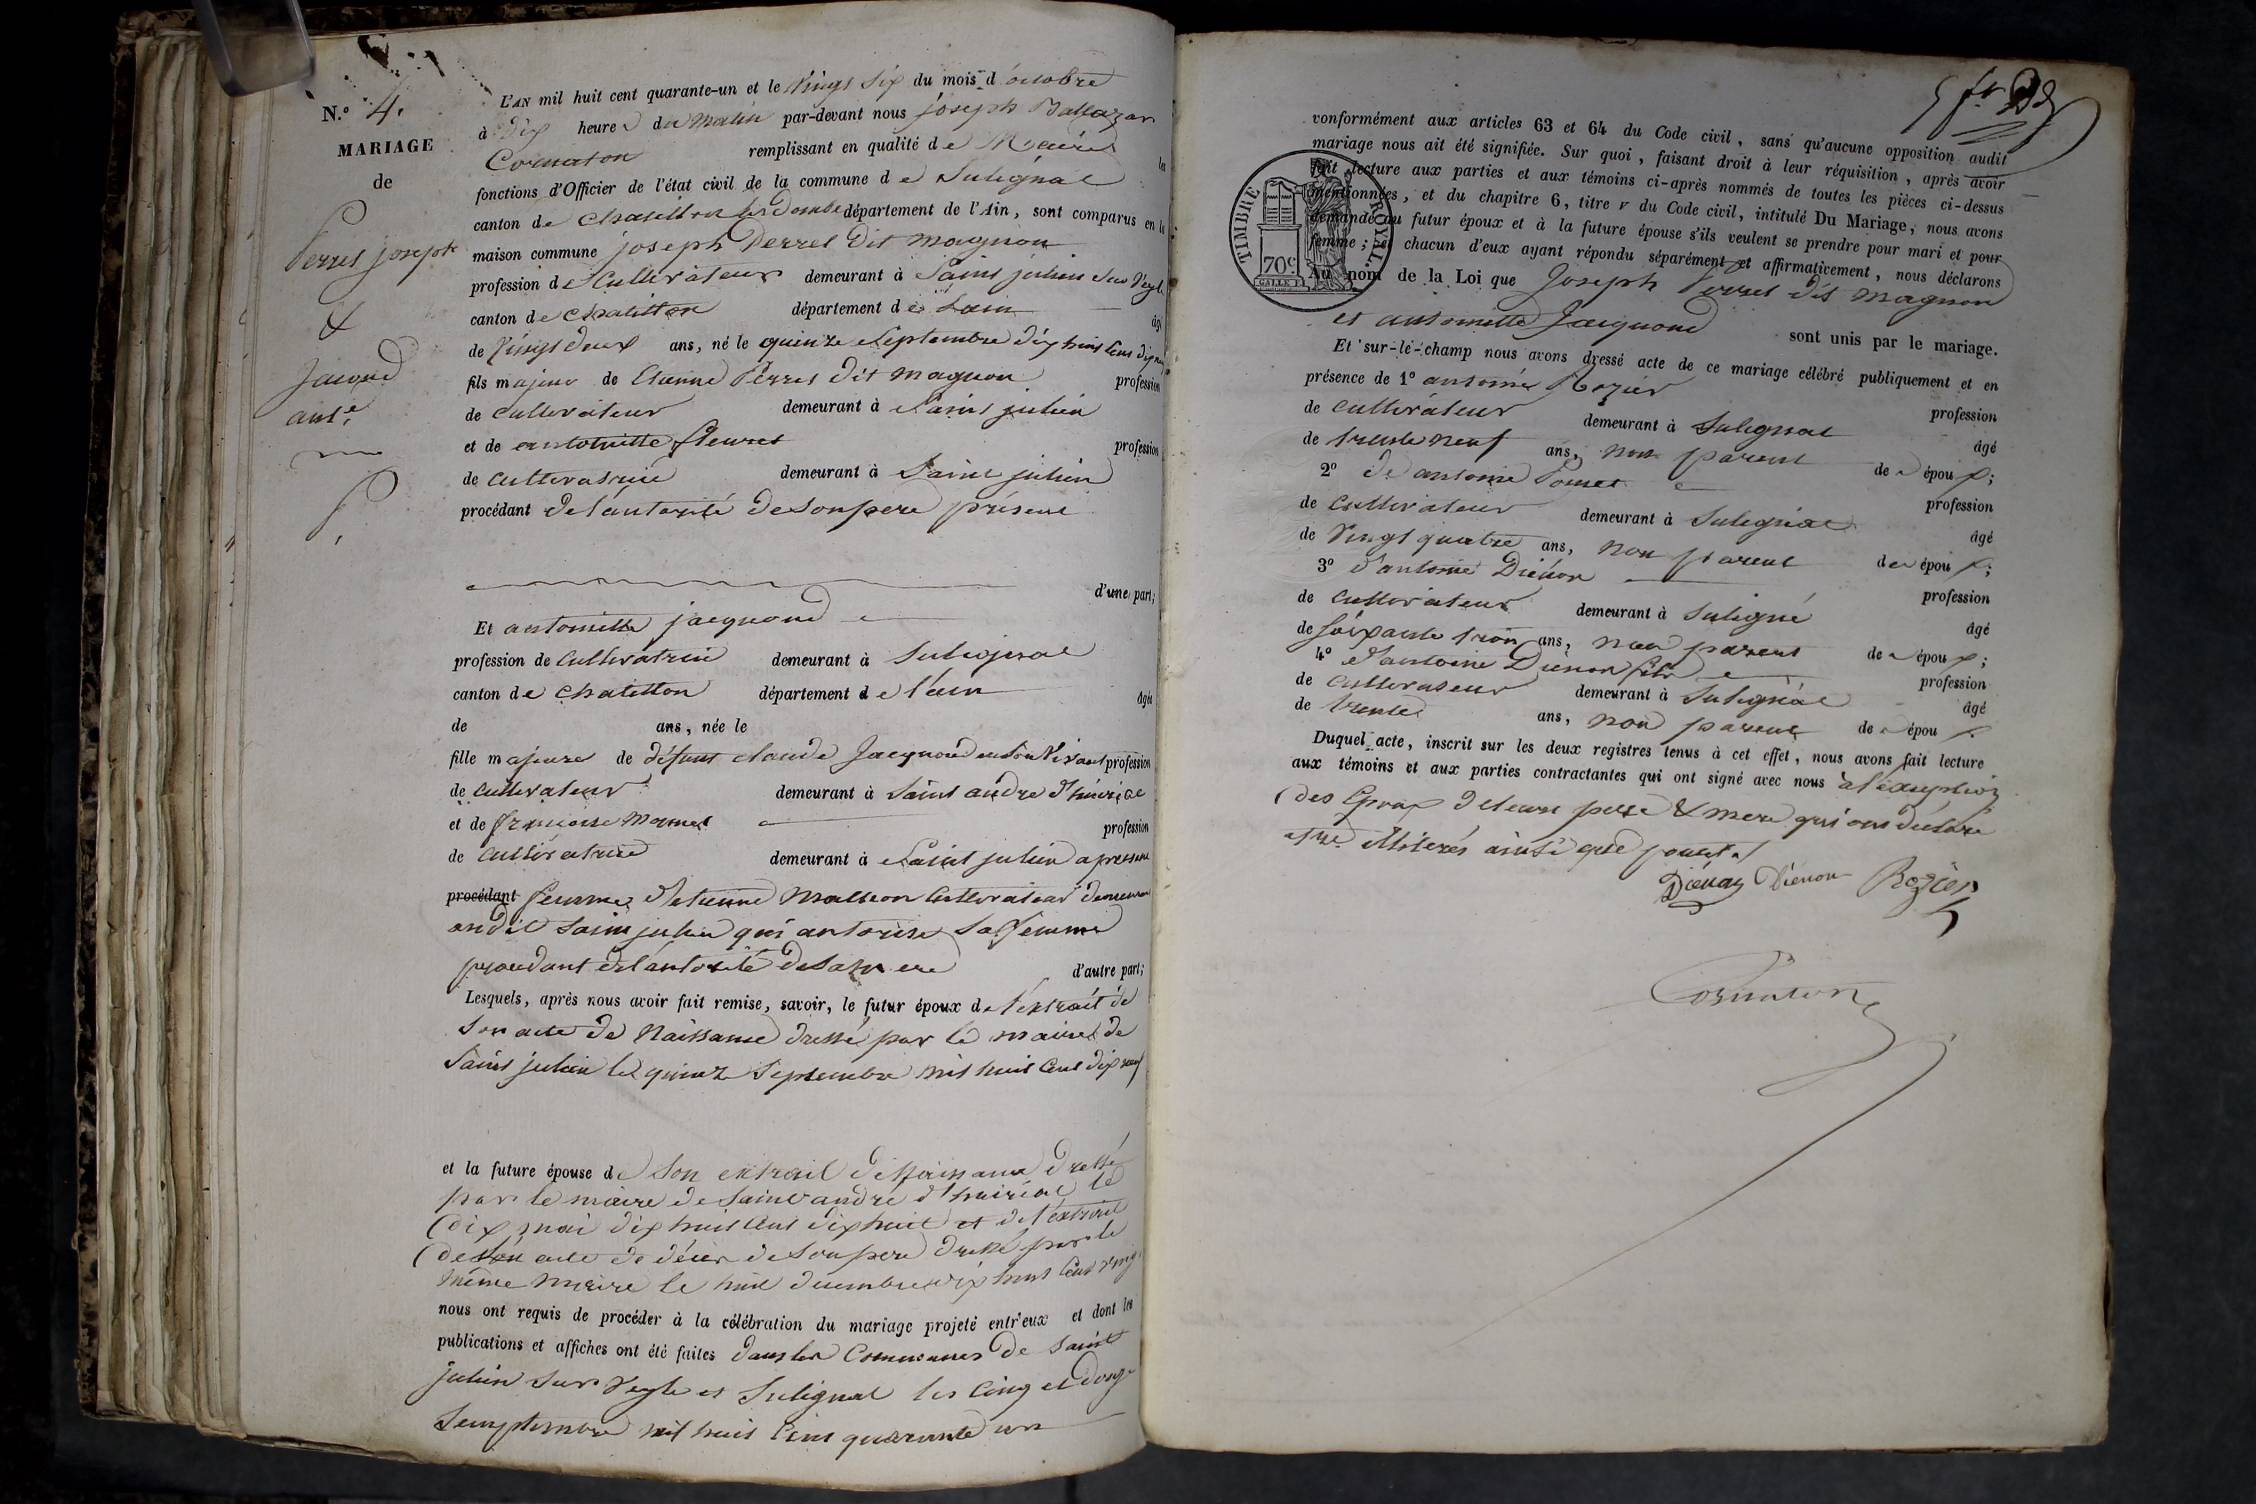 N.º 4.
MARIAGE
de
Perret joseph
&
Jacoud
antte.
L'AN mil huit cent quarante-un et le vingt six du mois d'octobre
à dix heures du matin par-devant nous joseph Baltazar
Cornaton remplissant en qualité de Maire les
fonctions d'Officier de l'état civil de la commune de Sulignat
canton de chatillon les dombe département de l'Ain, sont comparus en la
maison commune joseph Perret dit magnon
profession de Cultivateur demeurant à Saint julien sur Veyle
canton de chatillon département de Lain âgé
de Vingt deux ans, né le quinze Septembre dix huit Cent dix neuf
fils majeur de Etienne Perret dit magnon profession
de cultivateur demeurant à Saint julien
et de antoinette fleuret profession
de cultivatrice demeurant à Saint julien
procédant de l'autorité de son père présent
d'une part;
Et antoinette jacquoud
profession de Cultivatrice demeurant à Sulignat
canton de chatillon département de l'ain âgée
de ans, née le
fille majeure de défunt claude Jacquoud en son Vivant profession
de cultivateur demeurant à Saint andré d'huiriat
et de françoise mornet profession
de cultivatrice demeurant à Saint julien a présent
procédant femme d'etienne Cultivateur demeurant
audit Saint julien qui autorise Sa femme
procédant de l'autorité de Sa mere d'autre part;
Lesquels, après nous avoir fait remise, savoir, le futur époux de l'extrait de
Son acte de Naissance dressé par le maire de
Saint julien le quinze Septembre mil huit Cent dix neuf
et la future épouse de Son extrait de Naissance dressé
par le maire de Saint andré d'huiriat le
dix mai dix huit Cent dix huit et de l'extrait
de son acte de décès de Son pere dressé par le
même maire le huit decembre dix huit Cent vingt
nous ont requis de procéder à la célébration du mariage projeté entr'eux et dont les
publications et affiches ont été faites dans les Communes de Saint
julien sur Veyle et Sulignat les Cinq et douze
Semptembre mil huit Cent quarante un
conformément aux articles 63 et 64 du Code civil, sans qu'aucune opposition audit
mariage nous ait été signifiée. Sur quoi, faisant droit à leur réquisition, après avoir
fait lecture aux parties et aux témoins ci-après nommés de toutes les pièces ci-dessus
mentionnées, et du chapitre 6, titre v du Code civil, intitulé Du Mariage, nous avons
demandé au futur époux et à la future épouse s'ils veulent se prendre pour mari et pour
femme; et chacun d'eux ayant répondu séparément et affirmativement, nous déclarons
Au nom de la Loi que Joseph Perret dit magnon
et antoinette Jacquoud sont unis par le mariage.
TIMBRE ROYAL
70c
Et sur-le-champ nous avons dressé acte de ce mariage célébré publiquement et en
présence de 1º antoine Rozier profession
de cultivateur demeurant à Sulignat âgé
de trente neuf ans, non parent des époux;
2º de antoine Poncet profession
de cultivateur demeurant à Sulignat âgé
de Vingt quatre ans, non parent des époux;
3º d'antoine Diénon profession
de cultivateur demeurant à Suligné âgé
de Soixante trois ans, non parent des époux;
4º d'antoine Diénon fils profession
de cultivateur demeurant à Sulignat âgé
de trente ans, non parent des époux
Duquel acte, inscrit sur les deux registres tenus à cet effet, nous avons fait lecture
aux témoins et aux parties contractantes qui ont signé avec nous à l'exception
des Epoux de leurs pere & mere qui ont déclaré
etre illiterés ainsi que poncet
Diénon Diénon Rozier
Cornaton